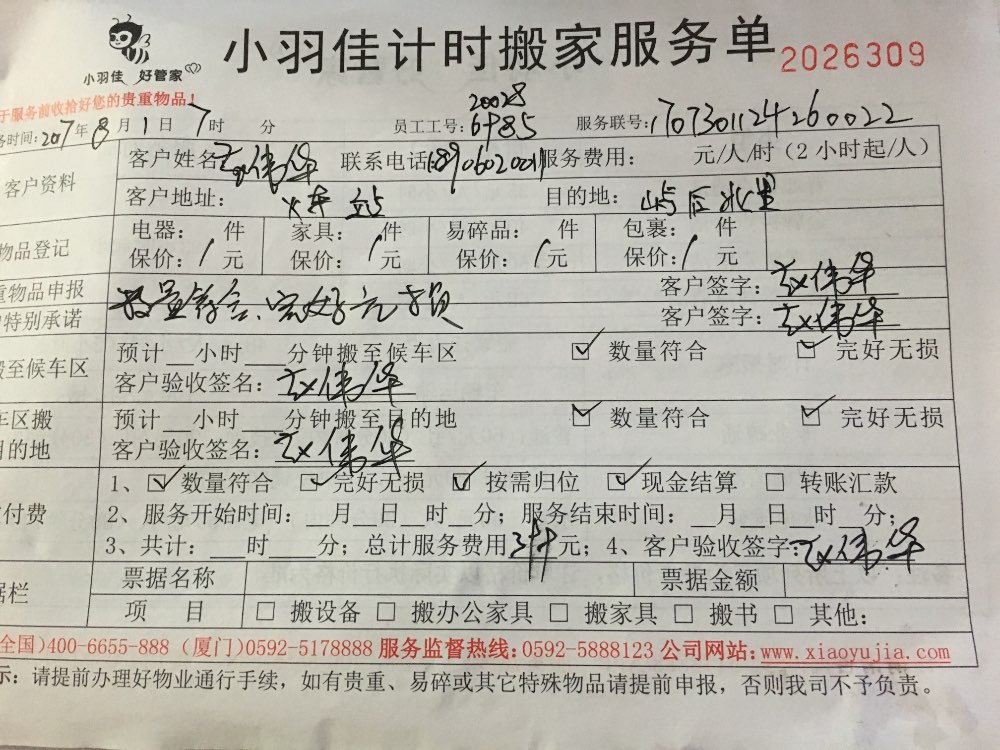 小羽佳计时搬家服务单 2026309
小羽佳 好管家
于服务前收拾好您的贵重物品！
20028
务时间: 2017年8月1日7时 分 员工工号: 6785 服务联号: 1707301124260022
客户资料 客户姓名 赵伟华 联系电话 18906020011 服务费用: 元/人/时（2小时起/人）
客户地址: 火车站 目的地:
物品登记 电器: 件 家具: 件 易碎品: 件 包裹: 件
保价: / 元 保价: / 元 保价: / 元 保价: / 元
重物品申报 客户签字: 赵伟华
特别承诺 数量符合、完好无损 客户签字: 赵伟华
搬至候车区 预计__小时___分钟搬至候车区 ☑ 数量符合 ☑ 完好无损
客户验收签名: 赵伟华
车区搬 预计__小时___分钟搬至目的地 ☑ 数量符合 ☑ 完好无损
目的地 客户验收签名: 赵伟华
1、☑ 数量符合 ☑ 完好无损 ☑ 按需归位 ☑ 现金结算 □ 转账汇款
付费 2、服务开始时间: __月__日__时__分; 服务结束时间: __月__日__时__分;
3、共计: ___时____分; 总计服务费用 元; 4、客户验收签字: 赵伟华
据栏 票据名称 票据金额
项 目 □ 搬设备 □ 搬办公家具 □ 搬家具 □ 搬书 □ 其他:
全国)400-6655-888 (厦门)0592-5178888 服务监督热线:0592-5888123 公司网站:www.xiaoyujia.com
示: 请提前办理好物业通行手续，如有贵重、易碎或其它特殊物品请提前申报，否则我司不予负责。